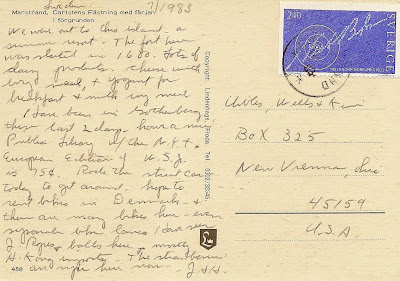 Sweden 7/1983
Marstrand, Carlstens Fästning med färjan
i förgrunden
We were out to this island. a
summer resort - The fort here
was started in 1680. Lots of
dairy products - cheese with
every meal, & yogurt for
breakfast & milk every meal
I have been in Gothenberg
these last 2 days. have a nice
Public Library w/ the N.Y.T.
European Edition of W.S.J.
is 75¢. Rode the street cars
today to get around. hope to
rent bikes in Denmark - &
there are many bikes here - even
separate bike lanes. I have seen
J. Ropes & balls here - mostly
H. Kong imports - The strawberries
are ripe here now - JHH.
458
Copyright: Lindenhags, Floda. Tel. 0302/32045.
240
SVERIGE
Miles, Wells &
Box 325
New Vienna, Ohio
45159
U.S.A.